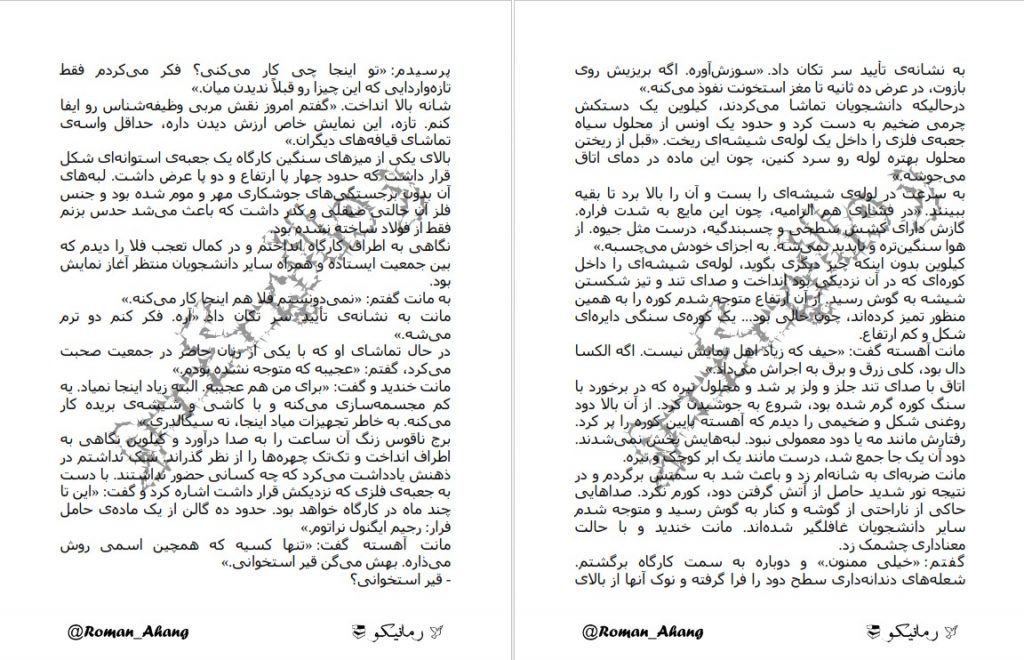 پرسیدم: «تو اینجا چی کار می‌کنی؟ فکر می‌کردم فقط
تازه‌واردایی که این چیزا رو قبلاً ندیدن میان.»
شانه بالا انداخت. «گفتم امروز نقش مربی وظیفه‌شناس رو ایفا
کنم. تازه، این نمایش خاص ارزش دیدن داره، حداقل واسه‌ی
تماشای قیافه‌های دیگران.»
بالای یکی از میزهای سنگین کارگاه یک جعبه‌ی استوانه‌ای شکل
قرار داشت که حدود چهار پا ارتفاع و دو پا عرض داشت. لبه‌های
آن بدون برجستگی‌های جوشکاری مهر و موم شده بود و جنس
فلز آن حالتی صیقلی و کدر داشت که باعث می‌شد حدس بزنم
فقط از فولاد ساخته نشده بود.
نگاهی به اطراف کارگاه انداختم و در کمال تعجب فلا را دیدم که
بین جمعیت ایستاده و همراه سایر دانشجویان منتظر آغاز نمایش
بود.
به مانت گفتم: «نمی‌دونستم فلا هم اینجا کار می‌کنه.»
مانت به نشانه‌ی تأیید سر تکان داد «آره. فکر کنم دو ترم
می‌شه.»
در حال تماشای او که با یکی از زنان حاضر در جمعیت صحبت
می‌کرد، گفتم: «عجیبه که متوجه نشده بودم.»
مانت خندید و گفت: «برای من هم عجیبه. البته زیاد اینجا نمیاد. یه
کم مجسمه‌سازی می‌کنه و با کاشی و شیشه‌ی بریده کار
می‌کنه. به خاطر تجهیزات میاد اینجا، نه سیگالدری.»
برج ناقوس زنگ آن ساعت را به صدا درآورد و کیلوین نگاهی به
اطراف انداخت و تک‌تک چهره‌ها را از نظر گذراند. شک نداشتم در
ذهنش یادداشت می‌کرد که چه کسانی حضور نداشتند. با دست
به جعبه‌ی فلزی که نزدیکش قرار داشت اشاره کرد و گفت: «این تا
چند ماه در کارگاه خواهد بود. حدود ده گالن از یک ماده‌ی حامل
فرار: رجیم ایگنول نراتوم.»
مانت آهسته گفت: «تنها کسیه که همچین اسمی روش
می‌ذاره. بهش می‌گن قیر استخوانی.»
- قیر استخوانی؟
رمانیکو
@Roman_Ahang
به نشانه‌ی تأیید سر تکان داد. «سوزش‌آوره. اگه بریزیش روی
بازوت، در عرض ده ثانیه تا مغز استخونت نفوذ می‌کنه.»
درحالیکه دانشجویان تماشا می‌کردند، کیلوین یک دستکش
چرمی ضخیم به دست کرد و حدود یک اونس از محلول سیاه
جعبه‌ی فلزی را داخل یک لوله‌ی شیشه‌ای ریخت. «قبل از ریختن
محلول بهتره لوله رو سرد کنین، چون این ماده در دمای اتاق
می‌جوشه.»
به سرعت در لوله‌ی شیشه‌ای را بست و آن را بالا برد تا بقیه
ببینند. «در فشاری هم الزامیه، چون این مایع به شدت فراره.
گازش دارای کشش سطحی و چسبندگیه، درست مثل جیوه. از
هوا سنگین‌تره و ناپدید نمی‌شه. به اجزای خودش می‌چسبه.»
کیلوین بدون اینکه چیز دیگری بگوید، لوله‌ی شیشه‌ای را داخل
کوره‌ای که در آن نزدیکی بود انداخت و صدای تند و تیز شکستن
شیشه به گوش رسید. از آن ارتفاع متوجه شدم کوره را به همین
منظور تمیز کرده‌اند، چون خالی بود... یک کوره‌ی سنگی دایره‌ای
شکل و کم ارتفاع.
مانت آهسته گفت: «حیف که زیاد اهل نمایش نیست. اگه الکسا
دال بود، کلی زرق و برق به اجراش می‌داد.»
اتاق با صدای تند جلز و ولز پر شد و محلول تیره که در برخورد با
سنگ کوره گرم شده بود، شروع به جوشیدن کرد. از آن بالا دود
روغنی شکل و ضخیمی را دیدم که آهسته پایین کوره را پر کرد.
رفتارش مانند مه یا دود معمولی نبود. لبه‌هایش پخش نمی‌شدند.
دود آن یک جا جمع شد، درست مانند یک ابر کوچک و تیره.
مانت ضربه‌ای به شانه‌ام زد و باعث شد به سمتش برگردم و در
نتیجه نور شدید حاصل از آتش گرفتن دود، کورم نکرد. صداهایی
حاکی از ناراحتی از گوشه و کنار به گوش رسید و متوجه شدم
سایر دانشجویان غافلگیر شده‌اند. مانت خندید و با حالت
معناداری چشمک زد.
گفتم: «خیلی ممنون.» و دوباره به سمت کارگاه برگشتم.
شعله‌های دندانه‌داری سطح دود را فرا گرفته و نوک آنها از بالای
رمانیکو
@Roman_Ahang